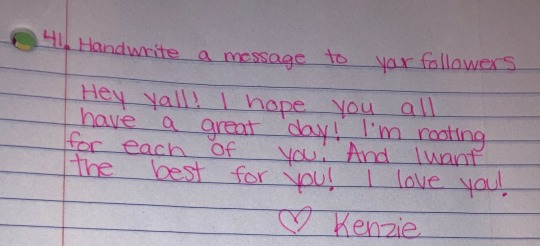 41. Handwrite a message to yar followers
Hey yall! I hope you all
have a great day! I'm rooting
for each of you. And I want
the best for you! I love you!
♡ Kenzie